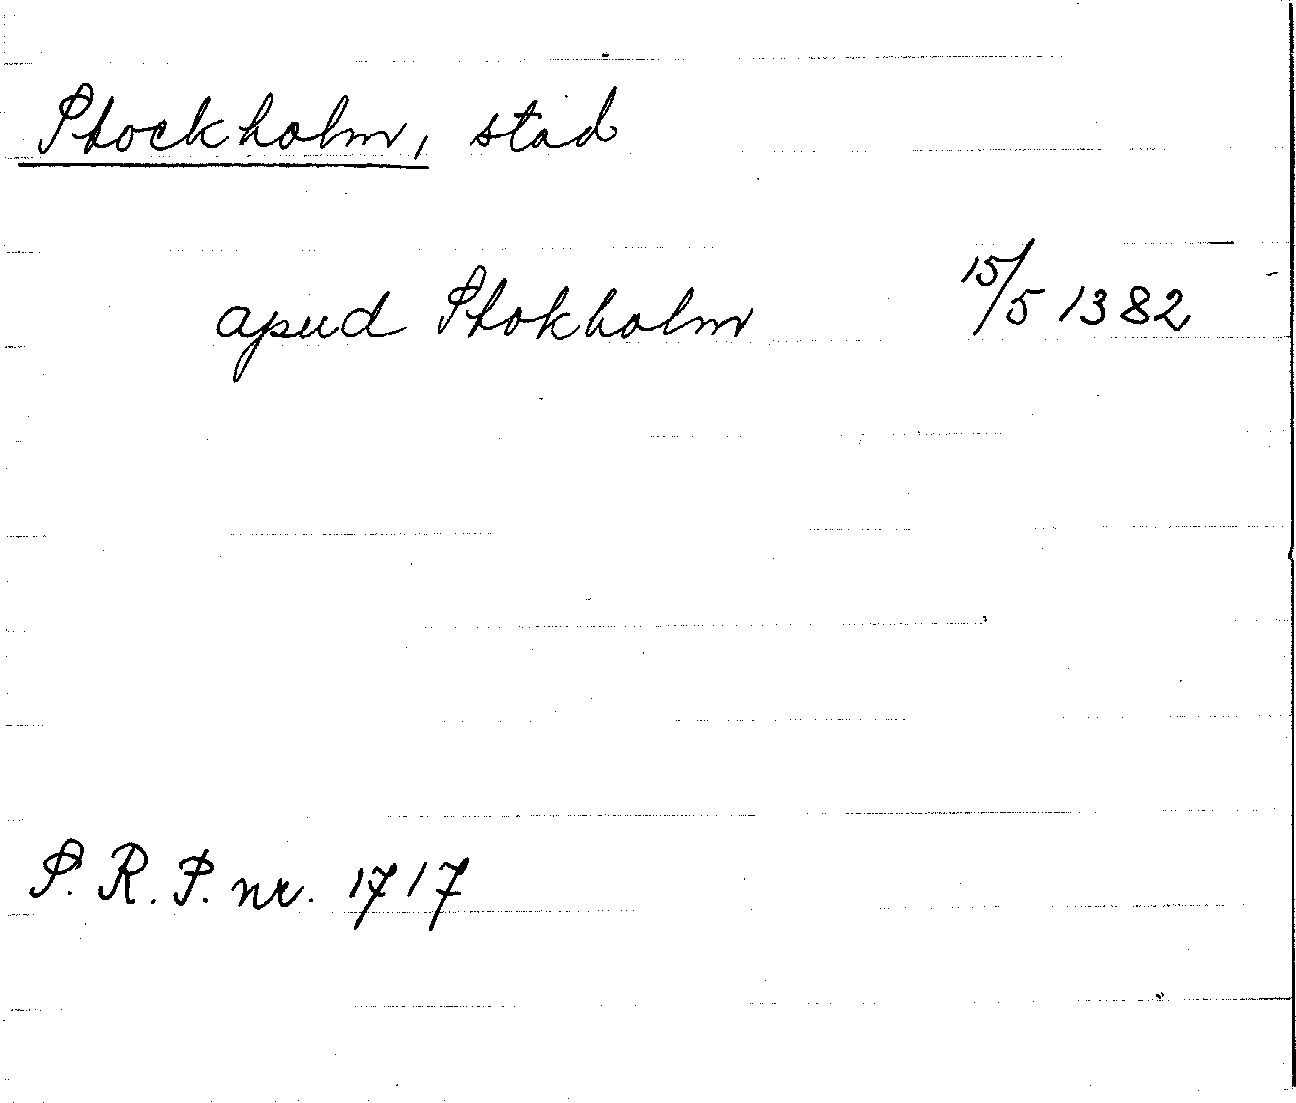 Stockholm, stad
apud Stokholm 15/5 1382
S. R. P. nr. 1717